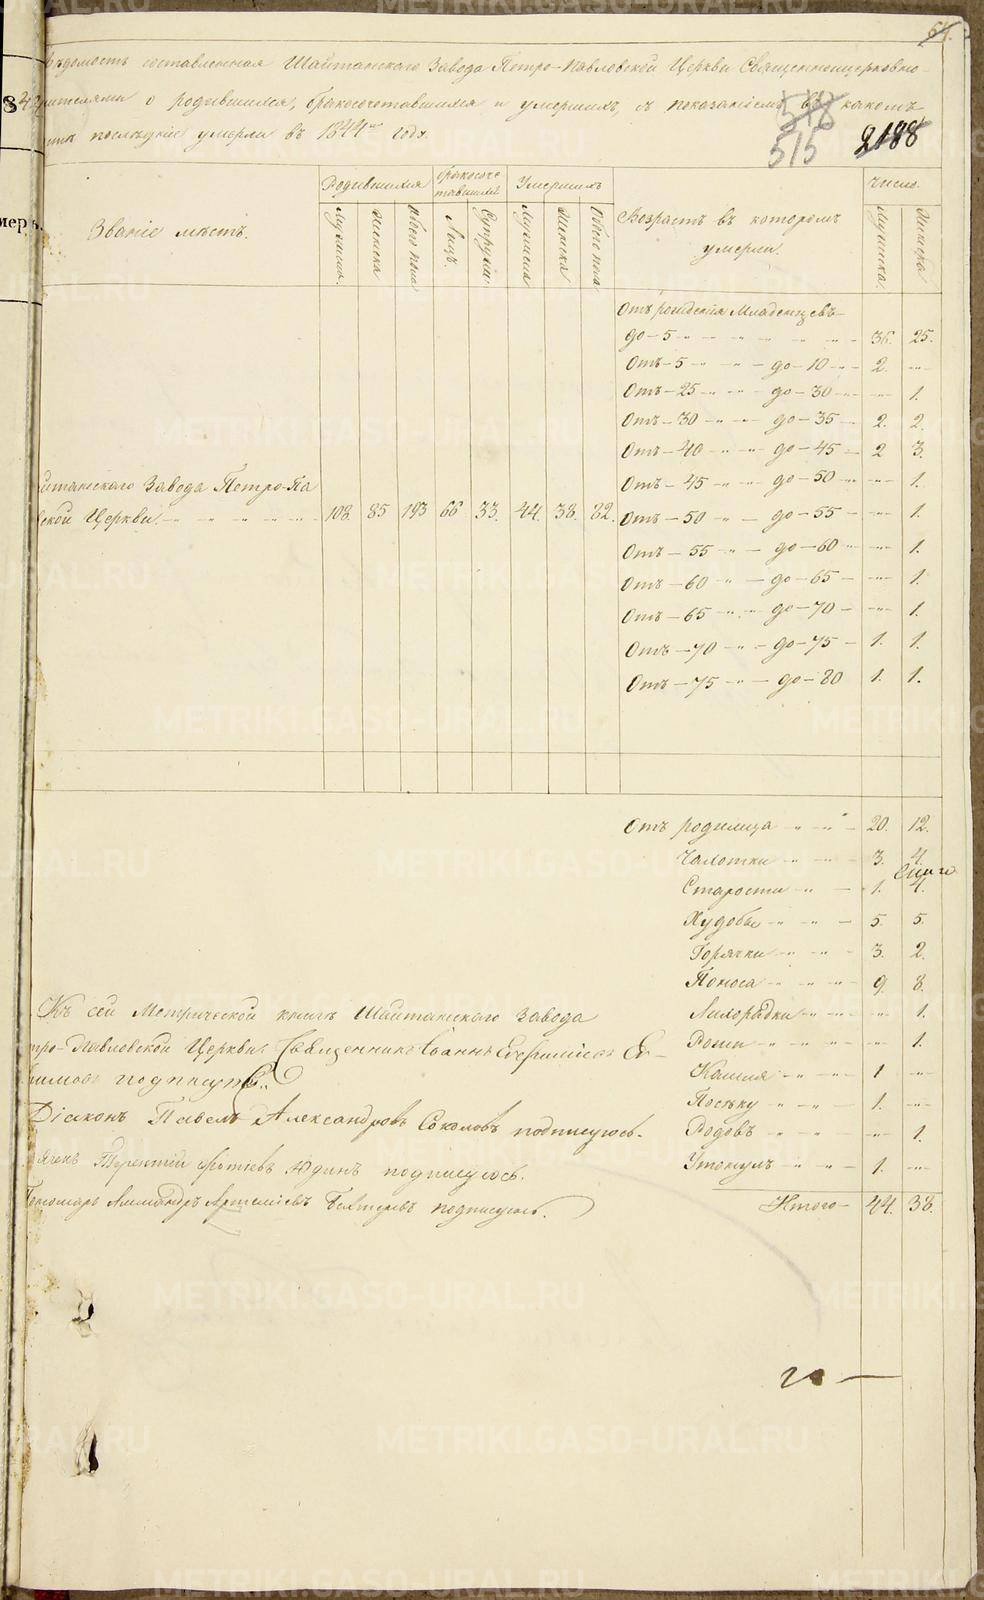 64.
Ведомость составленная Шайтанскаго Завода Петро-Павловской Церкви Священноцерковно-
жителями о родившихся, бракосочетавшихся и умершихъ, съ показаніемъ въ какомъ
последніе умерли въ 1844мъ годѣ.
515
2188
Званіе мѣстъ.
Родившихся
бракосоче
тавшихся
Умершихъ
Возрастъ въ которомъ
умерли.
Число
Мужеска
Женска
Обоего пола
Лицъ.
Супруж.
Мужеска
Женска
Обоего пола
Мужеска
Женска
Отъ рожденія Младенцевъ
до - 5 36. 25.
Отъ - 5 до - 10 2. -"-
Отъ - 25 до - 30 -"- 1.
Отъ - 30 до - 35 2. 2.
Отъ - 40 до - 45 2 3.
Отъ - 45 до - 50 -"- 1.
йтанскаго Завода Петро-Па
ской Церкви 108. 85 193 66 33. 44. 38. 82.
Отъ - 50 до - 55 -"- 1.
Отъ - 55 до - 60 -"- 1.
Отъ - 60 до - 65 -"- 1.
Отъ - 65 до - 70 -"- 1.
Отъ - 70 до - 75 1. 1.
Отъ - 75 до - 80 1. 1.
Отъ родимца 20. 12.
Чахотки 3. 4.
Старости 1. 4.
Худобы 5. 5.
Горячки 3. 2.
Поноса 9. 8.
Лихорадки -"- 1.
Рожи -"- 1.
Кашля 1 -"-
Посѣку 1. -"-
Родовъ -"- 1.
Утонулъ 1. -"-
Итого 44. 38.
Къ сей Метрической книгѣ Шайтанскаго Завода
тро-Павловской Церкви Священникъ Іоаннъ
подписуюсь.
Діаконъ Павелъ Александровъ Соколовъ подписуюсь.
Терентій Фотіевъ Юдинъ подписуюсь.
Пономарь подписуюсь.
METRIKI.GASO-URAL.RU